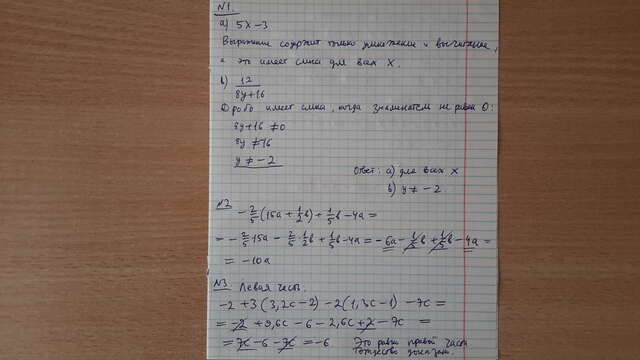 №1
а) 5x-3
Выражение содержит только умножение и вычитание,
а это имеет смысл для всех x.
b) 12/(8y+16)
Дробь имеет смысл, когда знаменатель не равен 0:
8y+16 ≠0
8y ≠-16
y ≠ -2
Ответ: а) для всех x
b) y ≠ -2
№2
-2/5(15a + 1/2b) + 1/5b - 4a =
= -2/5·15a - 2/5·1/2b + 1/5b - 4a = -6a - 1/5b + 1/5b - 4a =
= -10a
№3 Левая часть.
-2 + 3(3,2c-2) - 2(1,3c-1) - 7c =
= -2 + 9,6c - 6 - 2,6c + 2 - 7c =
= 7c - 6 - 7c = -6 Это равно правой части
тождество доказан.